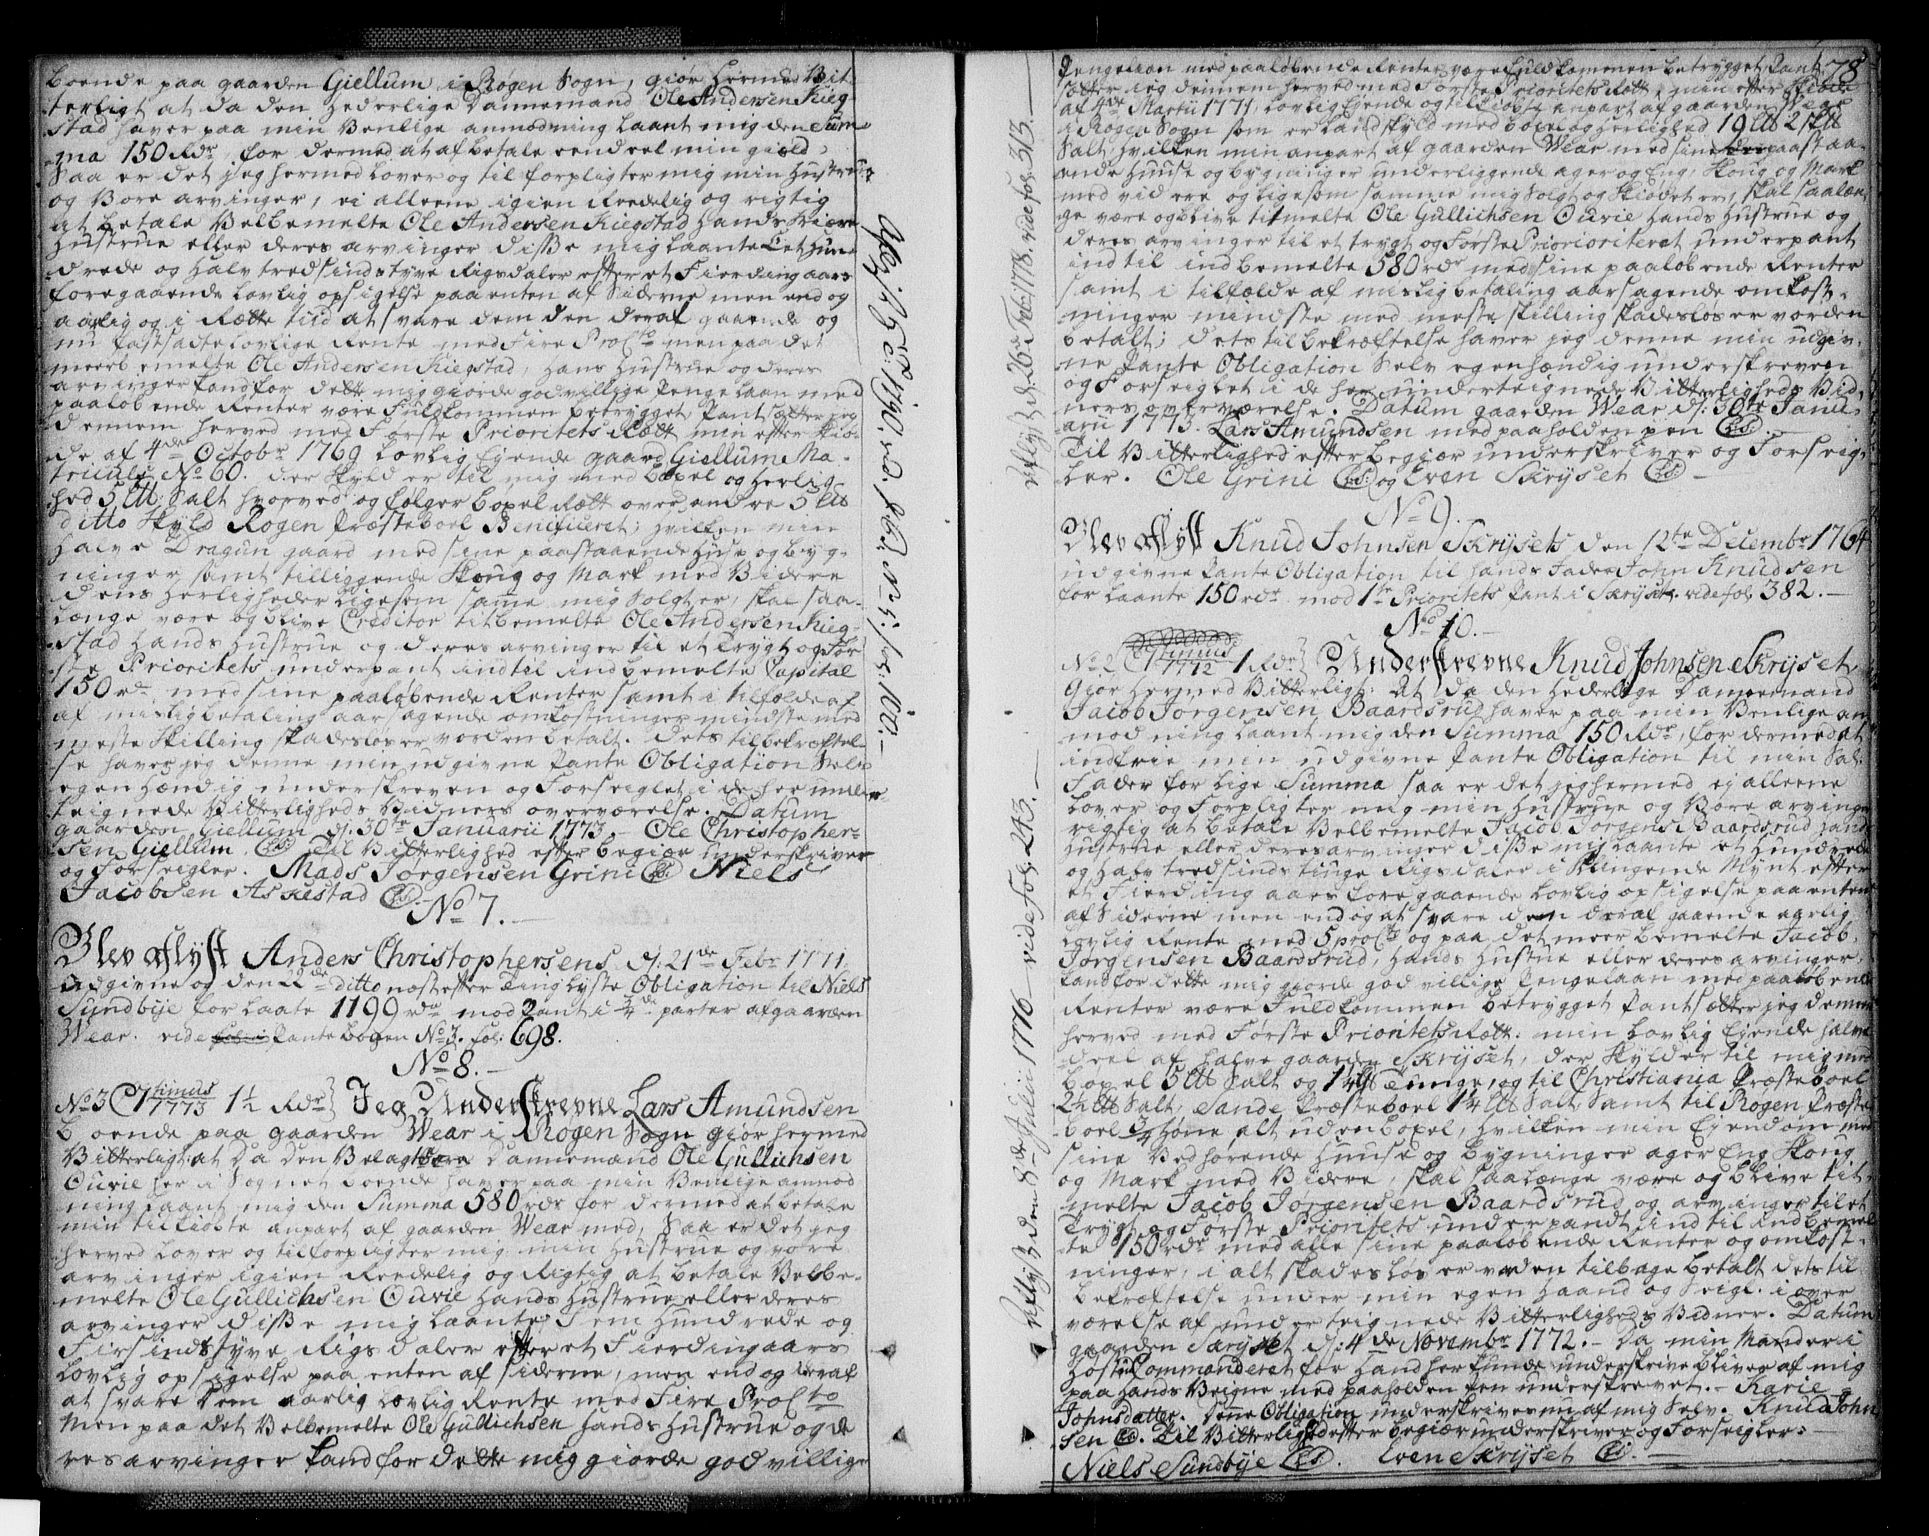 boende paa gaarden Giellum i Røgen Sogn, giør hermed Vit-
terligt at da den hederlige Dannemand Ole Andersen Kieg-
stad haver paa min Venlige anmodning laant mig den Sum-
ma 150 Rdr, for dermed at afbetale eendeel min gield,
Saa er det jeg hermed lover og til forpligter mig min Hustrue
og Vore arvinger, ei alleene igien Reedelig og rigtig
at betale Velbemelte Ole Andersen Kiegstad hands kiære
Hustrue eller deres arvinger disse mig laante Eet Hun-
drede og halvtredsindstyve Rigsdaler efter et Fierdingaars
foregaaende lovlig opsigelse paa enten af Siderne men end og
aarlig og i Rætte tiid at svare dem den deraf gaaende og
nu fastsadte lovlige Rente med Fire ProCto men paa det
meerbemelte Ole Andersen Kiegstad, hans Hustrue og deres
arvinger kand for dette mig giorde godvillige Penge laan med
paaløbende Renter være fulkommen betrygget, Pantsætter jeg
dennem herved med Første Prioritets Rætt min efter Skiø-
de af 4de Octobr 1769 lovlig Ejende gaard Giellum Ma-
triculs No 60. der Skyld er til mig med boxel og herlig-
hed 5 L℔ Salt hvorved og følger boxel Rætt over andre 5 L℔
ditto Skyld Røgen Præsteboel Benificeret; hvilken min
halve Dragun gaard med sine paastaaende huse og byg-
ninger samt tilliggende Skoug og Mark med Videre
dens herligheder ligesom same mig Solgt er, skal saa-
længe være og blive Creditor titbemelte Ole Andersen Kieg-
stad hands Hustrue og deres arvinger til et trygt og før-
ste Prioritets underpant indtil indbemelte Capital
150 rdr med sine paaløbende Renter samt i tilfælde af
af mislig betaling aarsagende omkostninger mindste med
meste Skilling skadesløs er vorden betalt. Dets tilbekræftel-
se haver jeg denne min udgivne Pante Obligation Selv
egenhændig underskreven og Forseiglet i de her under-
teignede Vitterligheds Vidners overværelse. Datum
gaarden Giellum d: 30te Januarii 1773. Ole Christopher-
sen Giellum. (LS.) Til Vitterlighed efter begiær underskriver
og Forseigler. Mads Jørgensen Grini (LS.) Niels
Jacobsen Askestad (LS.)
No 7.
Blev aflyst Anders Christophersens d: 21de Febr 1771.
udgivne og den 22de ditto næst efter Tinglyste Obligation til Niels
Sundbye for laante 1199 rdr mod Pant i 3/4de parter af gaarden
Wear. vide Pante bogen No 3. fol: 698.
No 8.
No 3 C 1 timus 1773 1½ Rdr} Jeg Understrevne Lars Amundsen
boende paa gaarden Wear i Røgen Sogn giør hermed
Vitterligt at da den Velagtbare Dannemand Ole Gullichsen
Ouvie her i Sognet boende haver paa min Venlige anmod
ning laant mig den Summa 580 rdr for dermed at betale
min tilkiøbte anpart af gaarden Wear med, Saa er det jeg
herved lover og tilforpligter mig min Hustrue og vore
arvinger igien Reedelig og Rigtig at betale Velbe-
melte Ole Gullichsen Ouvie hands Hustrue eller deres
arvinger disse mig laante Fem Hundrede og
Firsindstyve Rigsdaler efter et Fierdingaars
lovlig opsigelse paa enten af siderne, men end og deraf
at svare Dem aarlig lovlig Rente med Fire ProCto
Men paa det Velbemelte Ole Gullichsen hands Hustrue og de
res arvinger kand for dette mig giorde godvillige
78
Pengelaan med paaløbende Renter være fuldkommen betrygget, Pant
sætter jeg dennem herved med Første Prioritets Rætt, min efter Skiøde
af 4de Martii 1771, lovlig Ejende og tilkiøbte anpart af gaarden Wear
i Røgen Sogn som er landskyld med boxel og herlighed 19 L℔ 2 Sk℔
Salt, hvilken min anpart af gaarden Wear med sine paastaa-
ende Huuse og bygninger underliggende ager og Eng, Skoug og Mark
med vid ere og ligesom samme mig Solgt og Skiødet er, skal saalæn
ge være og blive titmelte Ole Gullichsen Ouvie hands Hustrue og
deres arvinger til et trygt og Første Priorioriteret underpant
indtil indbemelte 580 rdr med sine paaløbende Renter
samt i tilfælde af mislig betaling aarsagende omkost-
ninger mindste med meste skilling skadesløs er vorden
betalt; dets tilbekræftelse haver jeg denne min udgiv-
ne Pante Obligation Selv egenhændig underskreven
og Forseiglet i de her underteignede Vitterligheds Vid-
ners overværelse. Datum gaarden Wear d: 30te Janu-
arii 1773. Lars Amundsen med paaholden pen (LS).
Til Vitterlighed efter begiær underskriver og Forseig-
ler. Ole Grini (LS) og Even Skryset (LS)
No 9.
Blev aflyst Knud Johnsen Skrysets den 12te Decembr 1764
udgivne Pante Obligation til hands Fader John Knudsen
for laante 150 rdr mod 1te Prioritets Pant i Skryset. vide fol: 382.
No 10.
No 2 C 1 timus 1772 1 Rdr} Understrevne Knud Johnsen Skryset
Giør hermed Vitterligt: At da den hederlige Dannemand
Jacob Jørgensen Baardsrud haver paa min Venlige an
modning laant mig den Summa 150 Rdr, for dermed at
indfrie min udgivne Pante Obligation til min Sal:
Fader for lige Summa saa er det jeg hermed ej alleene
lover og Forpligter mig min Hustrue og Vore arvinge
rigtig at betale Velbemelte Jacob Jørgens Baardsrud hands
Hustrue eller deres arvinger disse mig laante et Hundrede
og Halvtredsinds tiuge Rigsdaler i Klingende Mynt efter
et Fierding aars foregaaende lovlig opsigelse paa enten
af Siderne men end og at svare den deraf gaaende aarlig
lovlig Rente med 5 proCto og paa det meer bemelte Jacob
Jørgensen Baardsrud, hands Hustrue eller deres arvinger,
kand for dette mig giorde godvillige Pengelaan med paaløbende
Renter være Fuldkommen betrygget Pantsætter jeg dennem
herved med Første Prioritets Rætt: min lovlig Ejende halve
deel af halve gaarden Skryset, der Skylder til mig med
boxel 5 L℔ Salt og 1¼ L℔ Tunge, og til Christiania Præsteboel
2½ L℔ Salt, Sande Præsteboel 1¼ L℔ Salt, Samt til Røgen Præste
boel 3/4 Høne alt uden boxel, hvilken min Ejendom med
sine Vedhørende Huuse og bygninger ager Eng Skoug
og Mark med Videre, skal saalænge være og blive tit-
melte Jacob Jørgensen Baardsrud og arvinger til et
Trygt og Første Prioritets underpandt indtil indbemel
te 150 rdr med alle sine paaløbende Renter og omkost-
ninger, i alt skadesløs er vorden tilbage betalt dets til
bekræftelse under min egen Haand og Seigl. i over
værelse af under teignede Vitterligheds Vidner. Datum
gaarden Skryset d: 4de Novembr 1772. Da min Mand er i
Høst Commanderet før hand her kunde underskrive bliver af mig
paa hands Veigne med paaholden Pen underskrevet. Karie
Johnsdatter. Denne Obligation underskrives nu af mig Selv. Knud John
sen (LS). Til Vitterlighed efter begiær underskriver og Forseigler
Niels Sundbye (LS). Even Skryset (LS).
aflyst d: 26de Febr: 1778. vide fol: 313.
Aflyst den 8de Julii 1776 vide fol: 243.